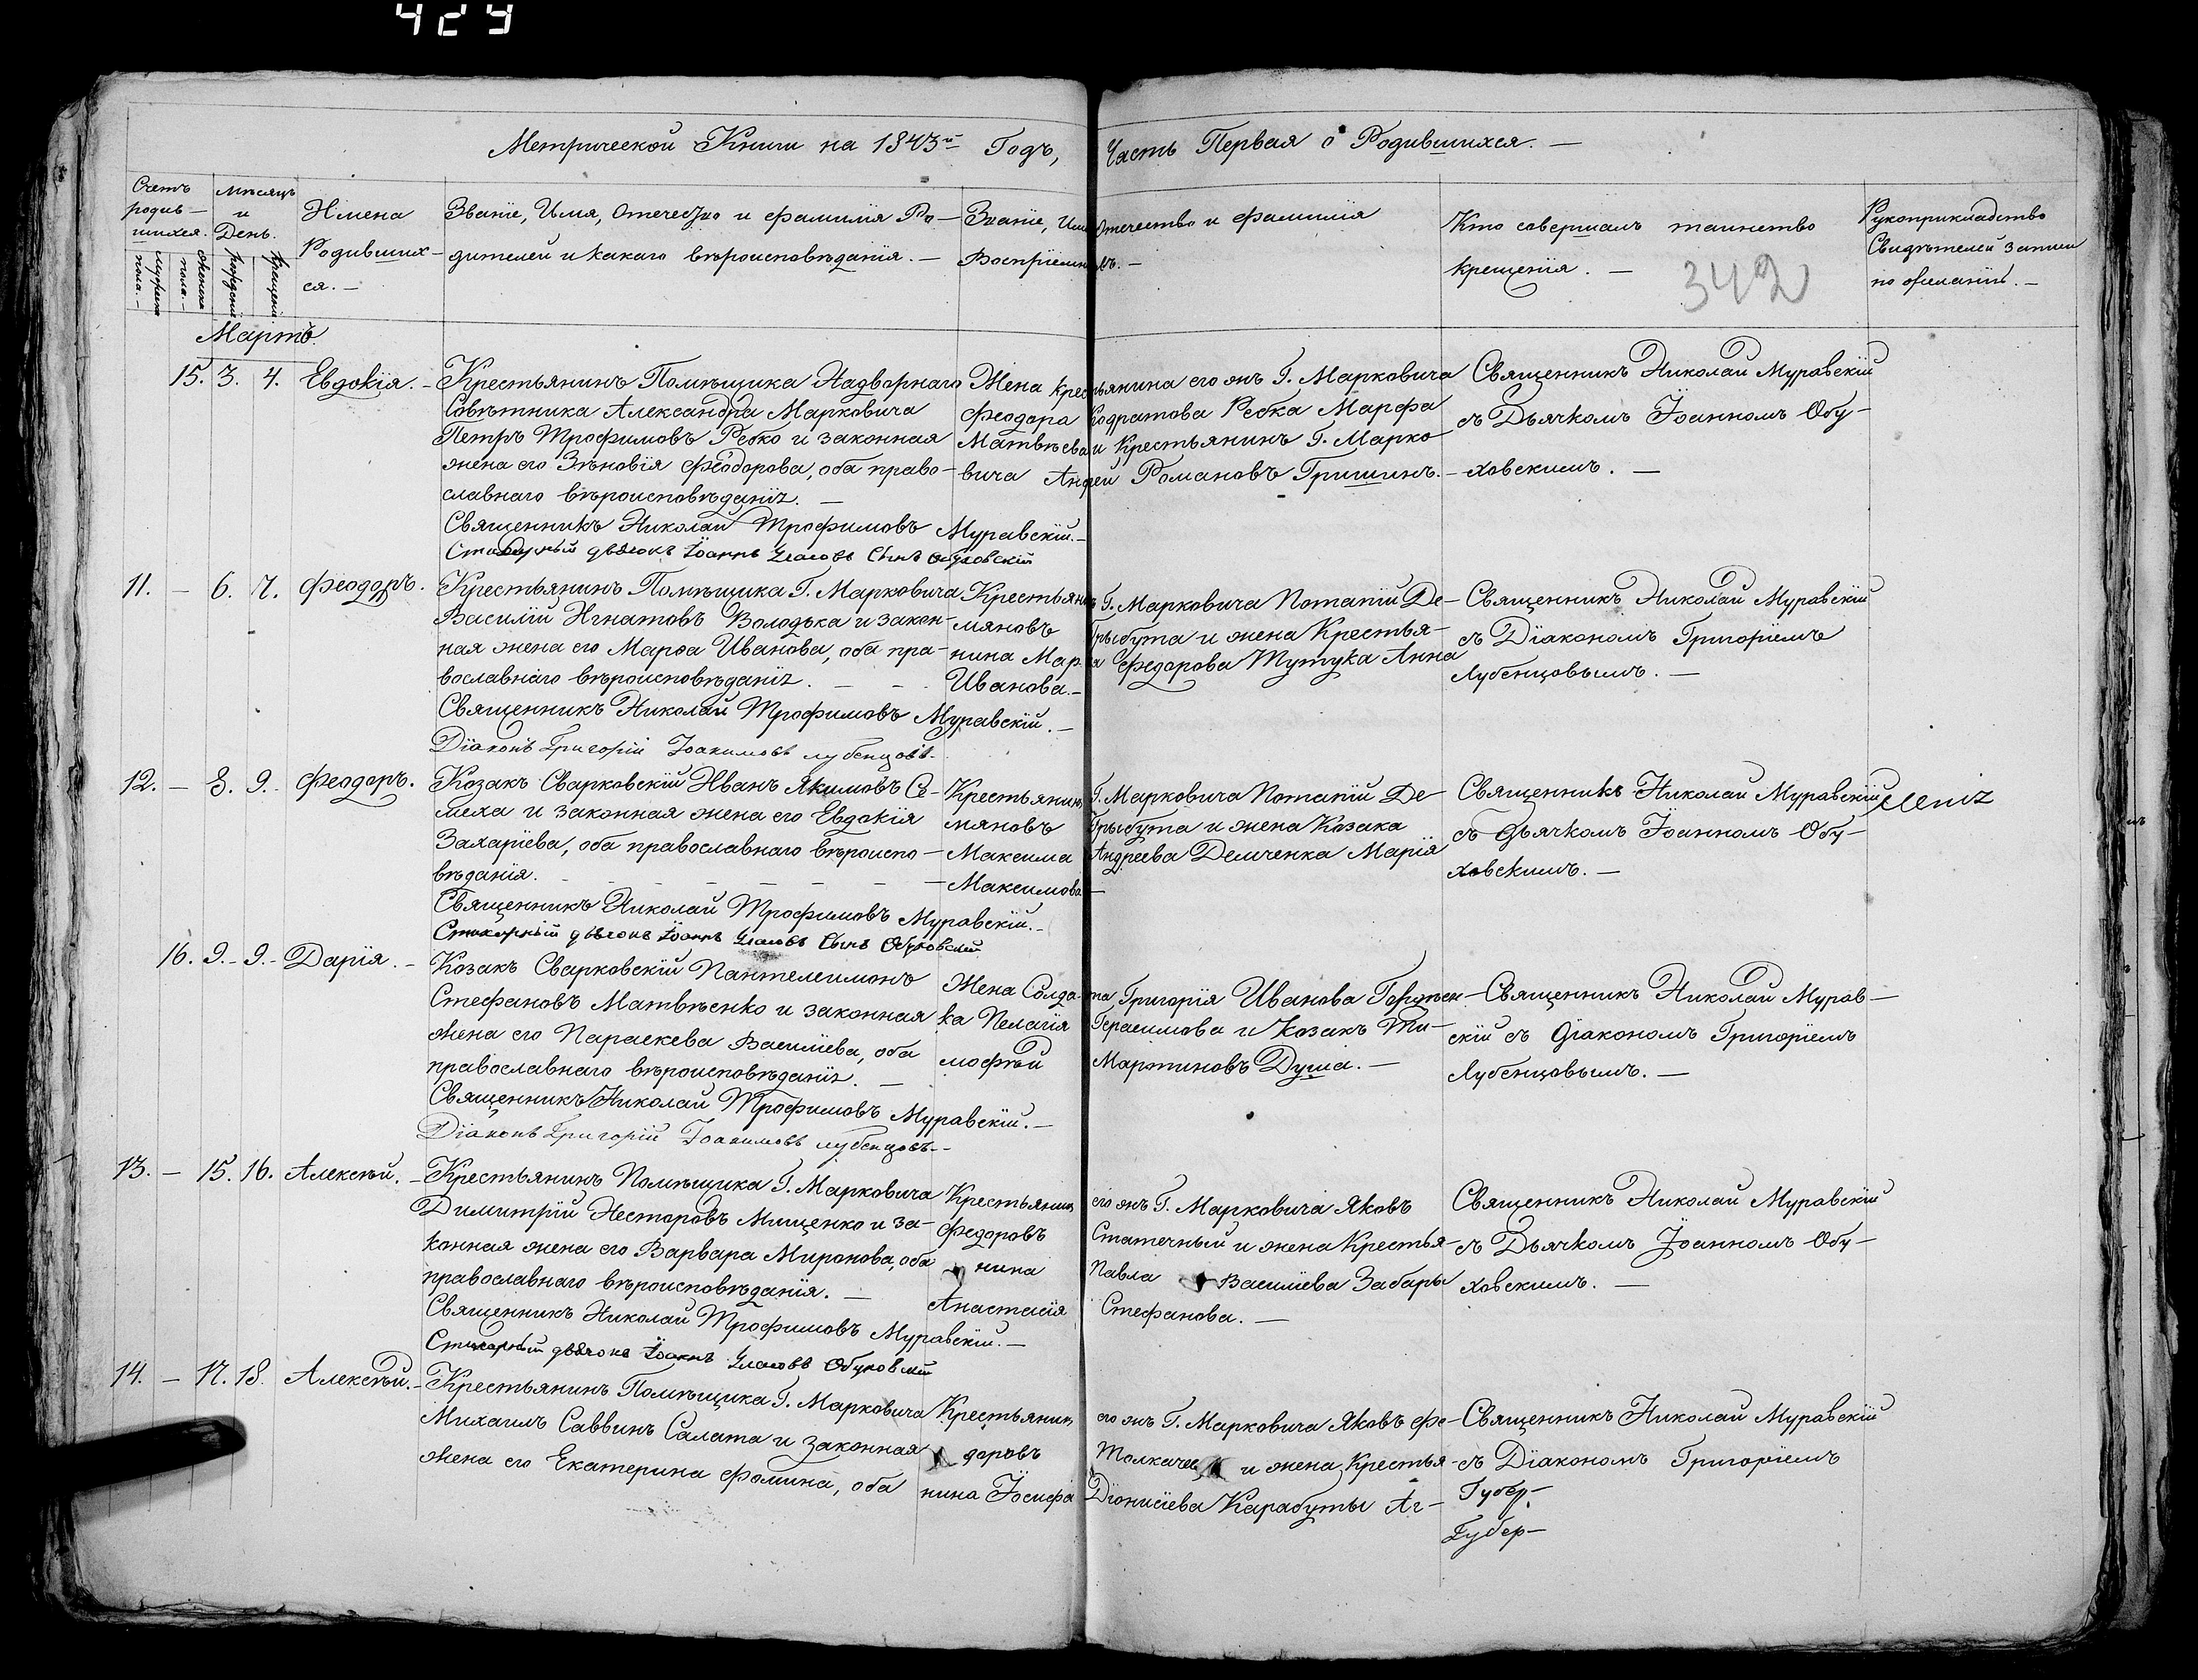 423
Метрической Книги на 1843й Годъ, Часть Первая о Родившихся. —
Счетъ родив—шихся.
мужеска пола.—
женска пола.—
Мѣсяцъ и День.
рожденія
крещенія
Имена Родивших—ся.—
Званіе, Имя, Отечество и фамилія Ро—
дителей и какаго вѣроисповѣданія. —
Званіе, Имя Отечество и фамилія
Воспріемниковъ. —
Кто совершалъ таинство
крещенія. —
342
Рукоприкладство
Свидѣтелей записи
по желанію. —
Мартъ.
15. 3. 4. Евдокія. —
Крестьянинъ Помѣщика Надворнаго
Совѣтника Александра Марковича
Петръ Трофимовъ Ребко и законная
жена его Зѣновія Феодорова, оба право—
славнаго вѣроисповѣданія. —
Жена крестьянина его жъ Г. Марковича
Феодора Кодратова Ребка Марфа
Матвѣева и Крестьянинъ Г. Марко—
вича Андрей Романовъ Гришинъ. —
Священникъ Николай Муравскій
съ Дьячкомъ Іоанномъ Обу—
ховскимъ. —
Священникъ Николай Трофимовъ Муравскій. —
Стихарный дьячокъ Іоаннъ Сынъ Обуховскій
11. — 6. 7. Феодоръ.
Крестьянинъ Помѣщика Г. Марковича
Василій Игнатовъ Володька и закон—
ная жена его Марѳа Иванова, оба пра—
вославнаго вѣроисповѣданія. — —
Крестьянинъ Г. Марковича Потапій Де—
мяновъ Грыбута и жена Крестья—
нина Мар. Федорова Тутука Анна
Иванова. —
Священникъ Николай Муравскій
съ Діакономъ Григоріемъ
Лубенцовымъ. —
Священникъ Николай Трофимовъ Муравскій. —
Діаконъ Григорій Іоакимовъ лубенцовъ.
12. — 8. 9. Феодоръ.
Козакъ Сварковскій Иванъ Якимовъ Се—
меха и законная жена его Евдокія
Захаріева, оба православнаго вѣроиспо—
вѣданія.
Крестьянинъ Г. Марковича Потапій Де—
мяновъ Грыбута и жена Козака
Максима Андреева Демченка Марія
Максимова —
Священникъ Николай Муравскій
съ Дьячкомъ Іоанномъ Обу—
ховскимъ. —
Священникъ Николай Трофимовъ Муравскій. —
Стихарный дьячокъ Іоаннъ Сынъ Обуховскій
16. 9. — 9. — Дарія. —
Козакъ Сварковскій Пантелеимонъ
Стефановъ Матвѣенко и законная
жена его Параскева Василіева, оба
православнаго вѣроисповѣданія. —
Жена Солдата Григорія Иванова
ка Пелагія Герасимова и козакъ Ти—
мофѣй Мартиновъ Душа. —
Священникъ Николай Мурав—
скій съ Діакономъ Григоріемъ
Лубенцовымъ. —
Священникъ Николай Трофимовъ Муравскій. —
Діаконъ Григорій Іоакимовъ лубенцовъ. —
13. — 15. 16. Алексѣй. —
Крестьянинъ Помѣщика Г. Марковича
Димитрій Несторовъ Мищенко и за—
конная жена его Варвара Миронова, оба
православнаго вѣроисповѣданія. —
Крестьянинъ его жъ Г. Марковича Яковъ
Федоровъ Статечный и жена Крестья—
нина Павла Василіева Забары
Анастасія Стефанова. —
Священникъ Николай Муравскій
съ Дьячкомъ Іоанномъ Обу—
ховскимъ. —
Священникъ Николай Трофимовъ Муравскій. —
Стихарный дьячокъ Іоаннъ Обуховскій
14. — 17. 18. Алексѣй. —
Крестьянинъ Помѣщика Г. Марковича
Михаилъ Саввинъ Салата и законная
жена его Екатерина Фомина, оба
Крестьянинъ его жъ Г. Марковича Яковъ Фе—
доровъ и жена Крестья—
нина Іосифа Діонисіева Карабуты Аг—
Священникъ Николай Муравскій
съ Діакономъ Григоріемъ
Губер—
Губер—